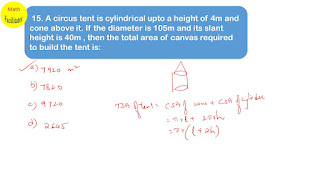 Math
15. A circus tent is cylindrical upto a height of 4m and
cone above it. If the diameter is 105m and its slant
height is 40m , then the total area of canvas required
to build the tent is:
a) 7920 m²
b) 7820
c) 9720
d) 2645
TSA of tent = CSA of cone + CSA of cylinder
= πrl + 2πrh
= πr(l + 2h)